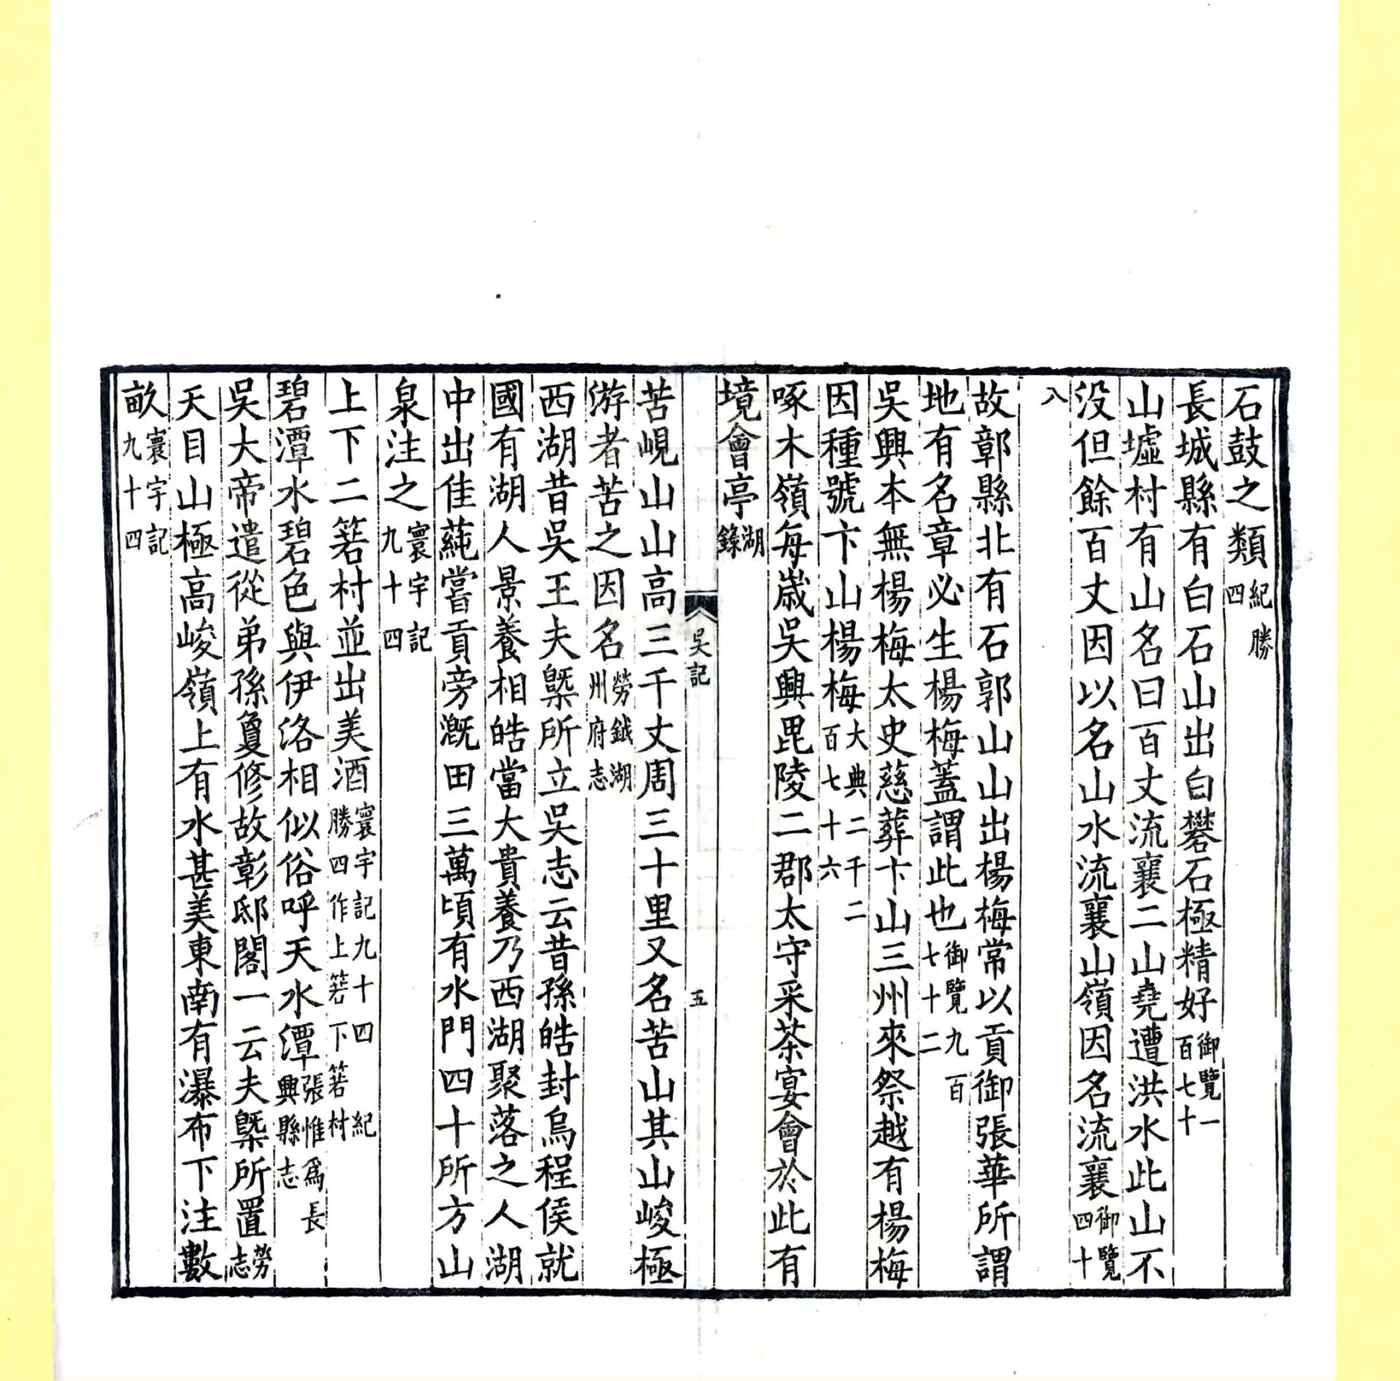 石鼓之類紀勝四
長城縣有白石山出白礬石極精好御覽一百七十
山墟村有山名曰百丈流襄二山堯遭洪水此山不
没但餘百丈因以名山水流襄山嶺因名流襄御覽四十
八
故鄣縣北有石郭山山出楊梅常以貢御張華所謂
地有名章必生楊梅蓋謂此也御覽九百七十二
吳興本無楊梅太史慈葬卞山三州來祭越有楊梅
因種號卞山楊梅大典二千二百七十六
啄木嶺每歲吳興毘陵二郡太守采茶宴會於此有
境會亭湖錄
吳記 五
苦峴山山高三千丈周三十里又名苦山其山峻極
游者苦之因名勞鉞湖州府志
西湖昔吳王夫槩所立吳志云昔孫皓封烏程侯就
國有湖人景養相皓當大貴養乃西湖聚落之人湖
中出佳蒓嘗貢旁溉田三萬頃有水門四十所方山
泉注之寰宇記九十四
上下二箬村並出美酒寰宇記九十四紀勝四作上箬下箬村
碧潭水碧色與伊洛相似俗呼天水潭張惟爲長興縣志
吳大帝遣從弟孫敻修故彰邸閣一云夫槩所置勞志
天目山極高峻嶺上有水甚美東南有瀑布下注數
畝寰宇記九十四